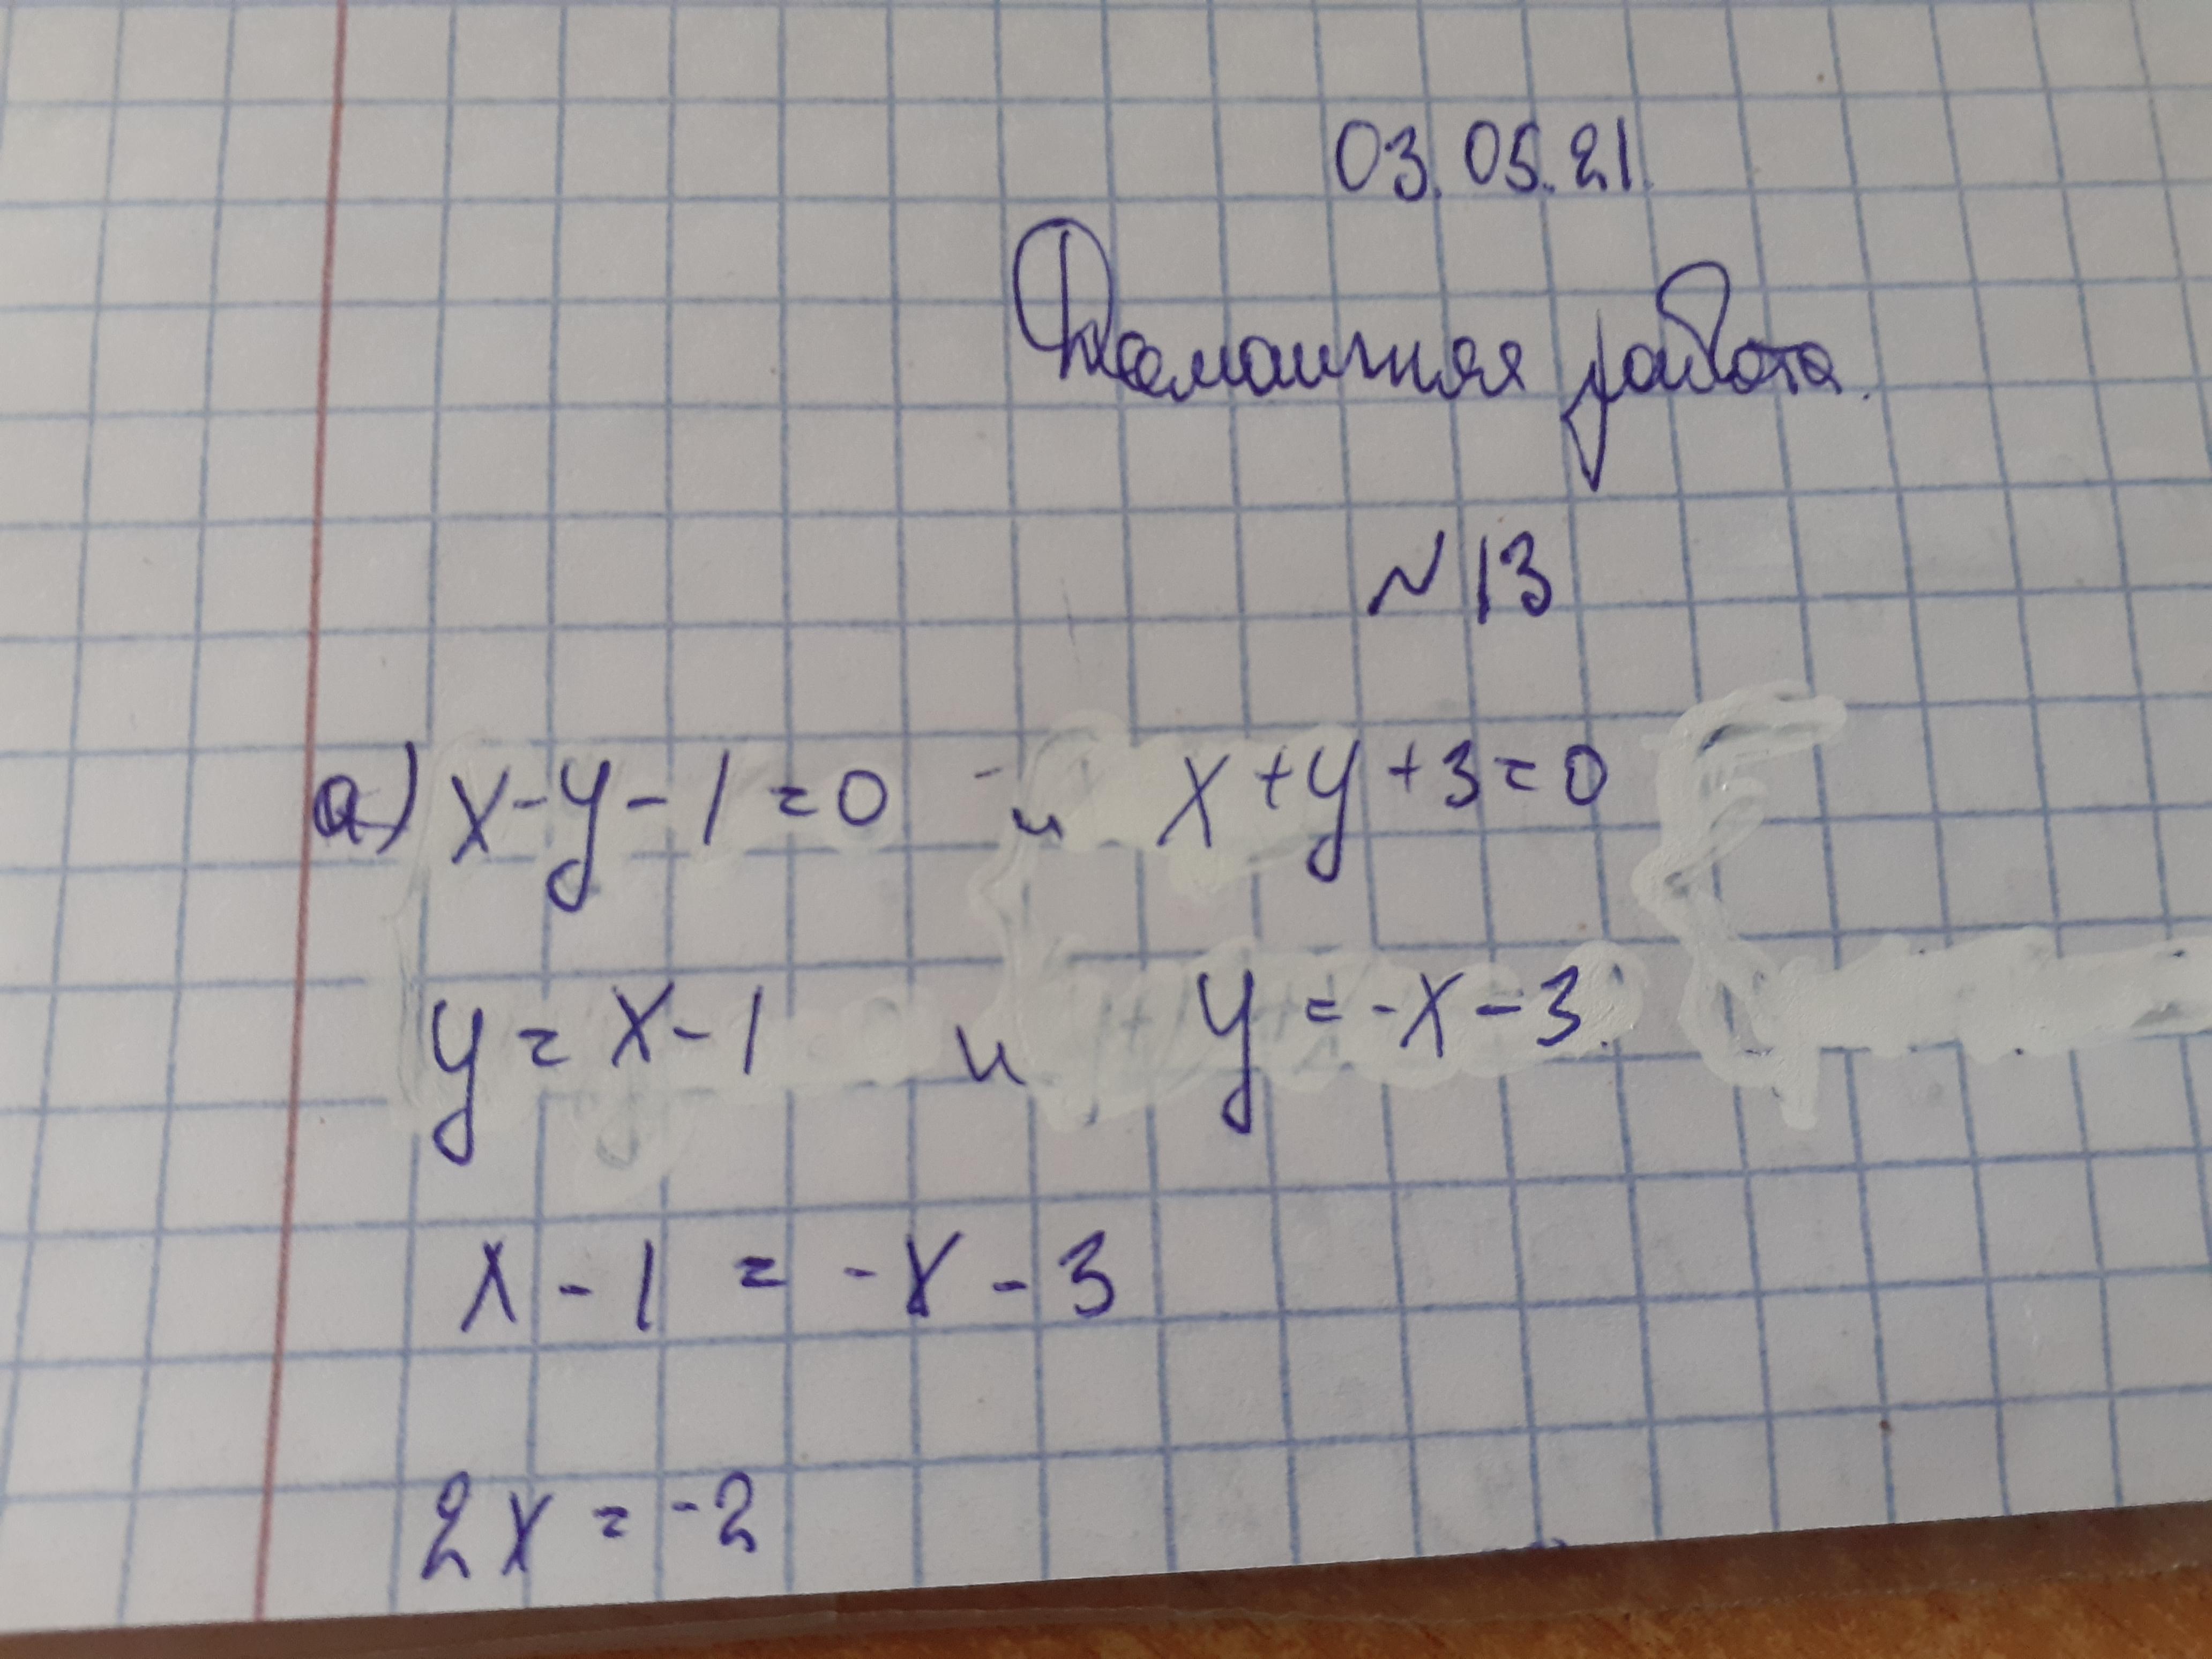 03.05.21.
Домашняя работа.
№13
а) x-y-1=0 и x+y+3=0
y=x-1 и y=-x-3.
x-1=-x-3
2x=-2